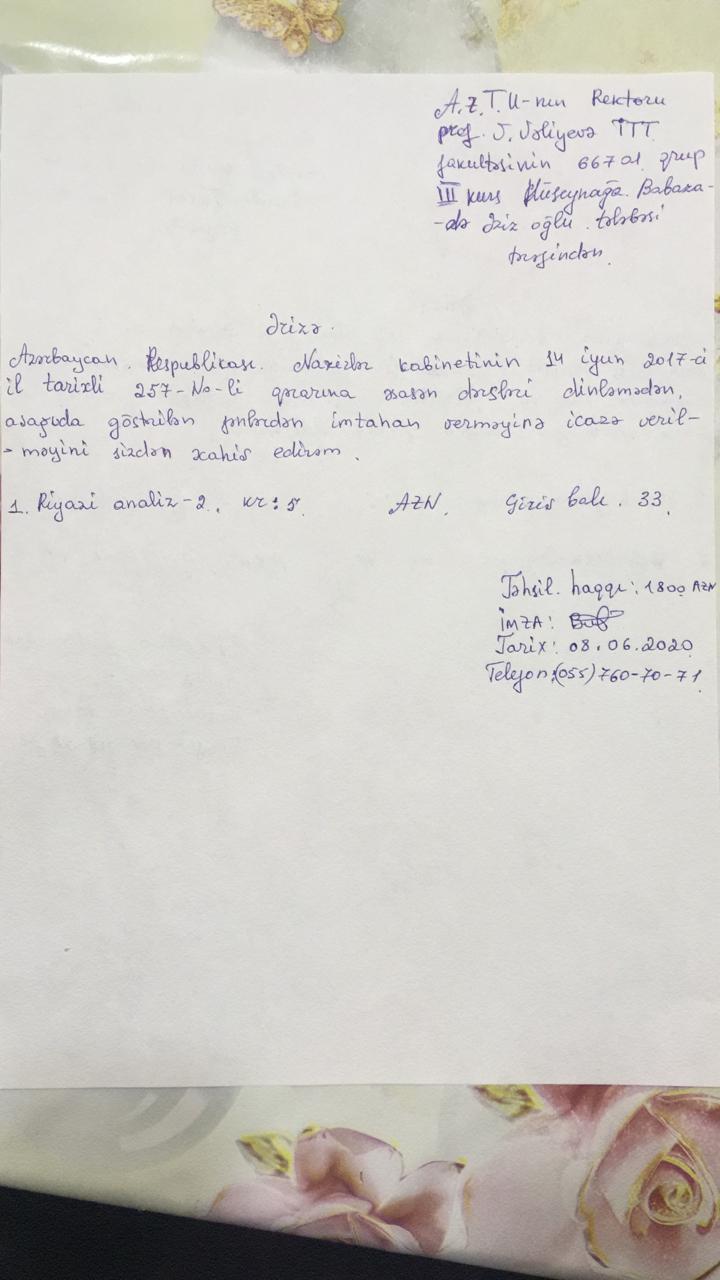 A.Z.T.U-nun Rektoru
prof. V. Vəliyevə İTT
fakultəsinin 667a1 qrup
III kurs Hüseynağa Babaza-
-də Əziz oğlu tələbəsi
tərəfindən.
Ərizə.
Azərbaycan Respublikası Nazirlər kabinetinin 14 iyun 2017-ci
il tarixli 257-No-li qərarına əsasən dərsləri dinləmədən,
aşağıda göstərilən fənlərdən imtahan verməyinə icazə veril-
-məyini sizdən xahiş edirəm.
1. Riyazi analiz-2. kr: 5 AZN. Giriş balı. 33.
Təhsil. haqqı: 1800 AZN
İMZA:
Tarix: 08.06.2020
Telefon:(055)760-70-71